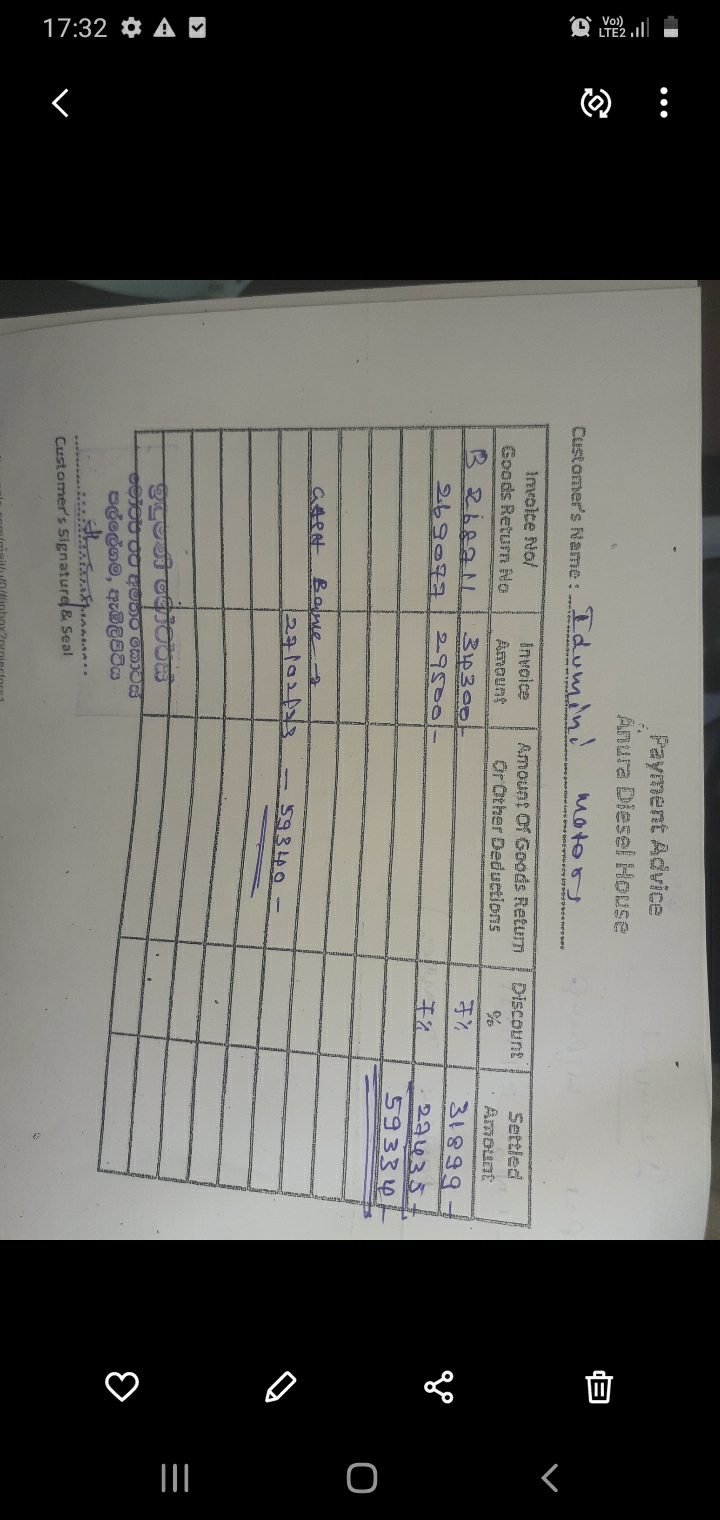 17:32
Vo))
LTE2
Payment Advice
Anura Diesel House
Customer's Name: Idumini motors
Invoice No/ Goods Return No
Invoice Amount
Amount Of Goods Return Or Other Deductions
Discount %
Settled Amount
B 268711 34300- 7% 31899-
269077 29500- 7% 27435-
59334-
27/02/23 - 59340-
ඉදුමිණි මෝටර්ස්
Customer's Signature & Seal